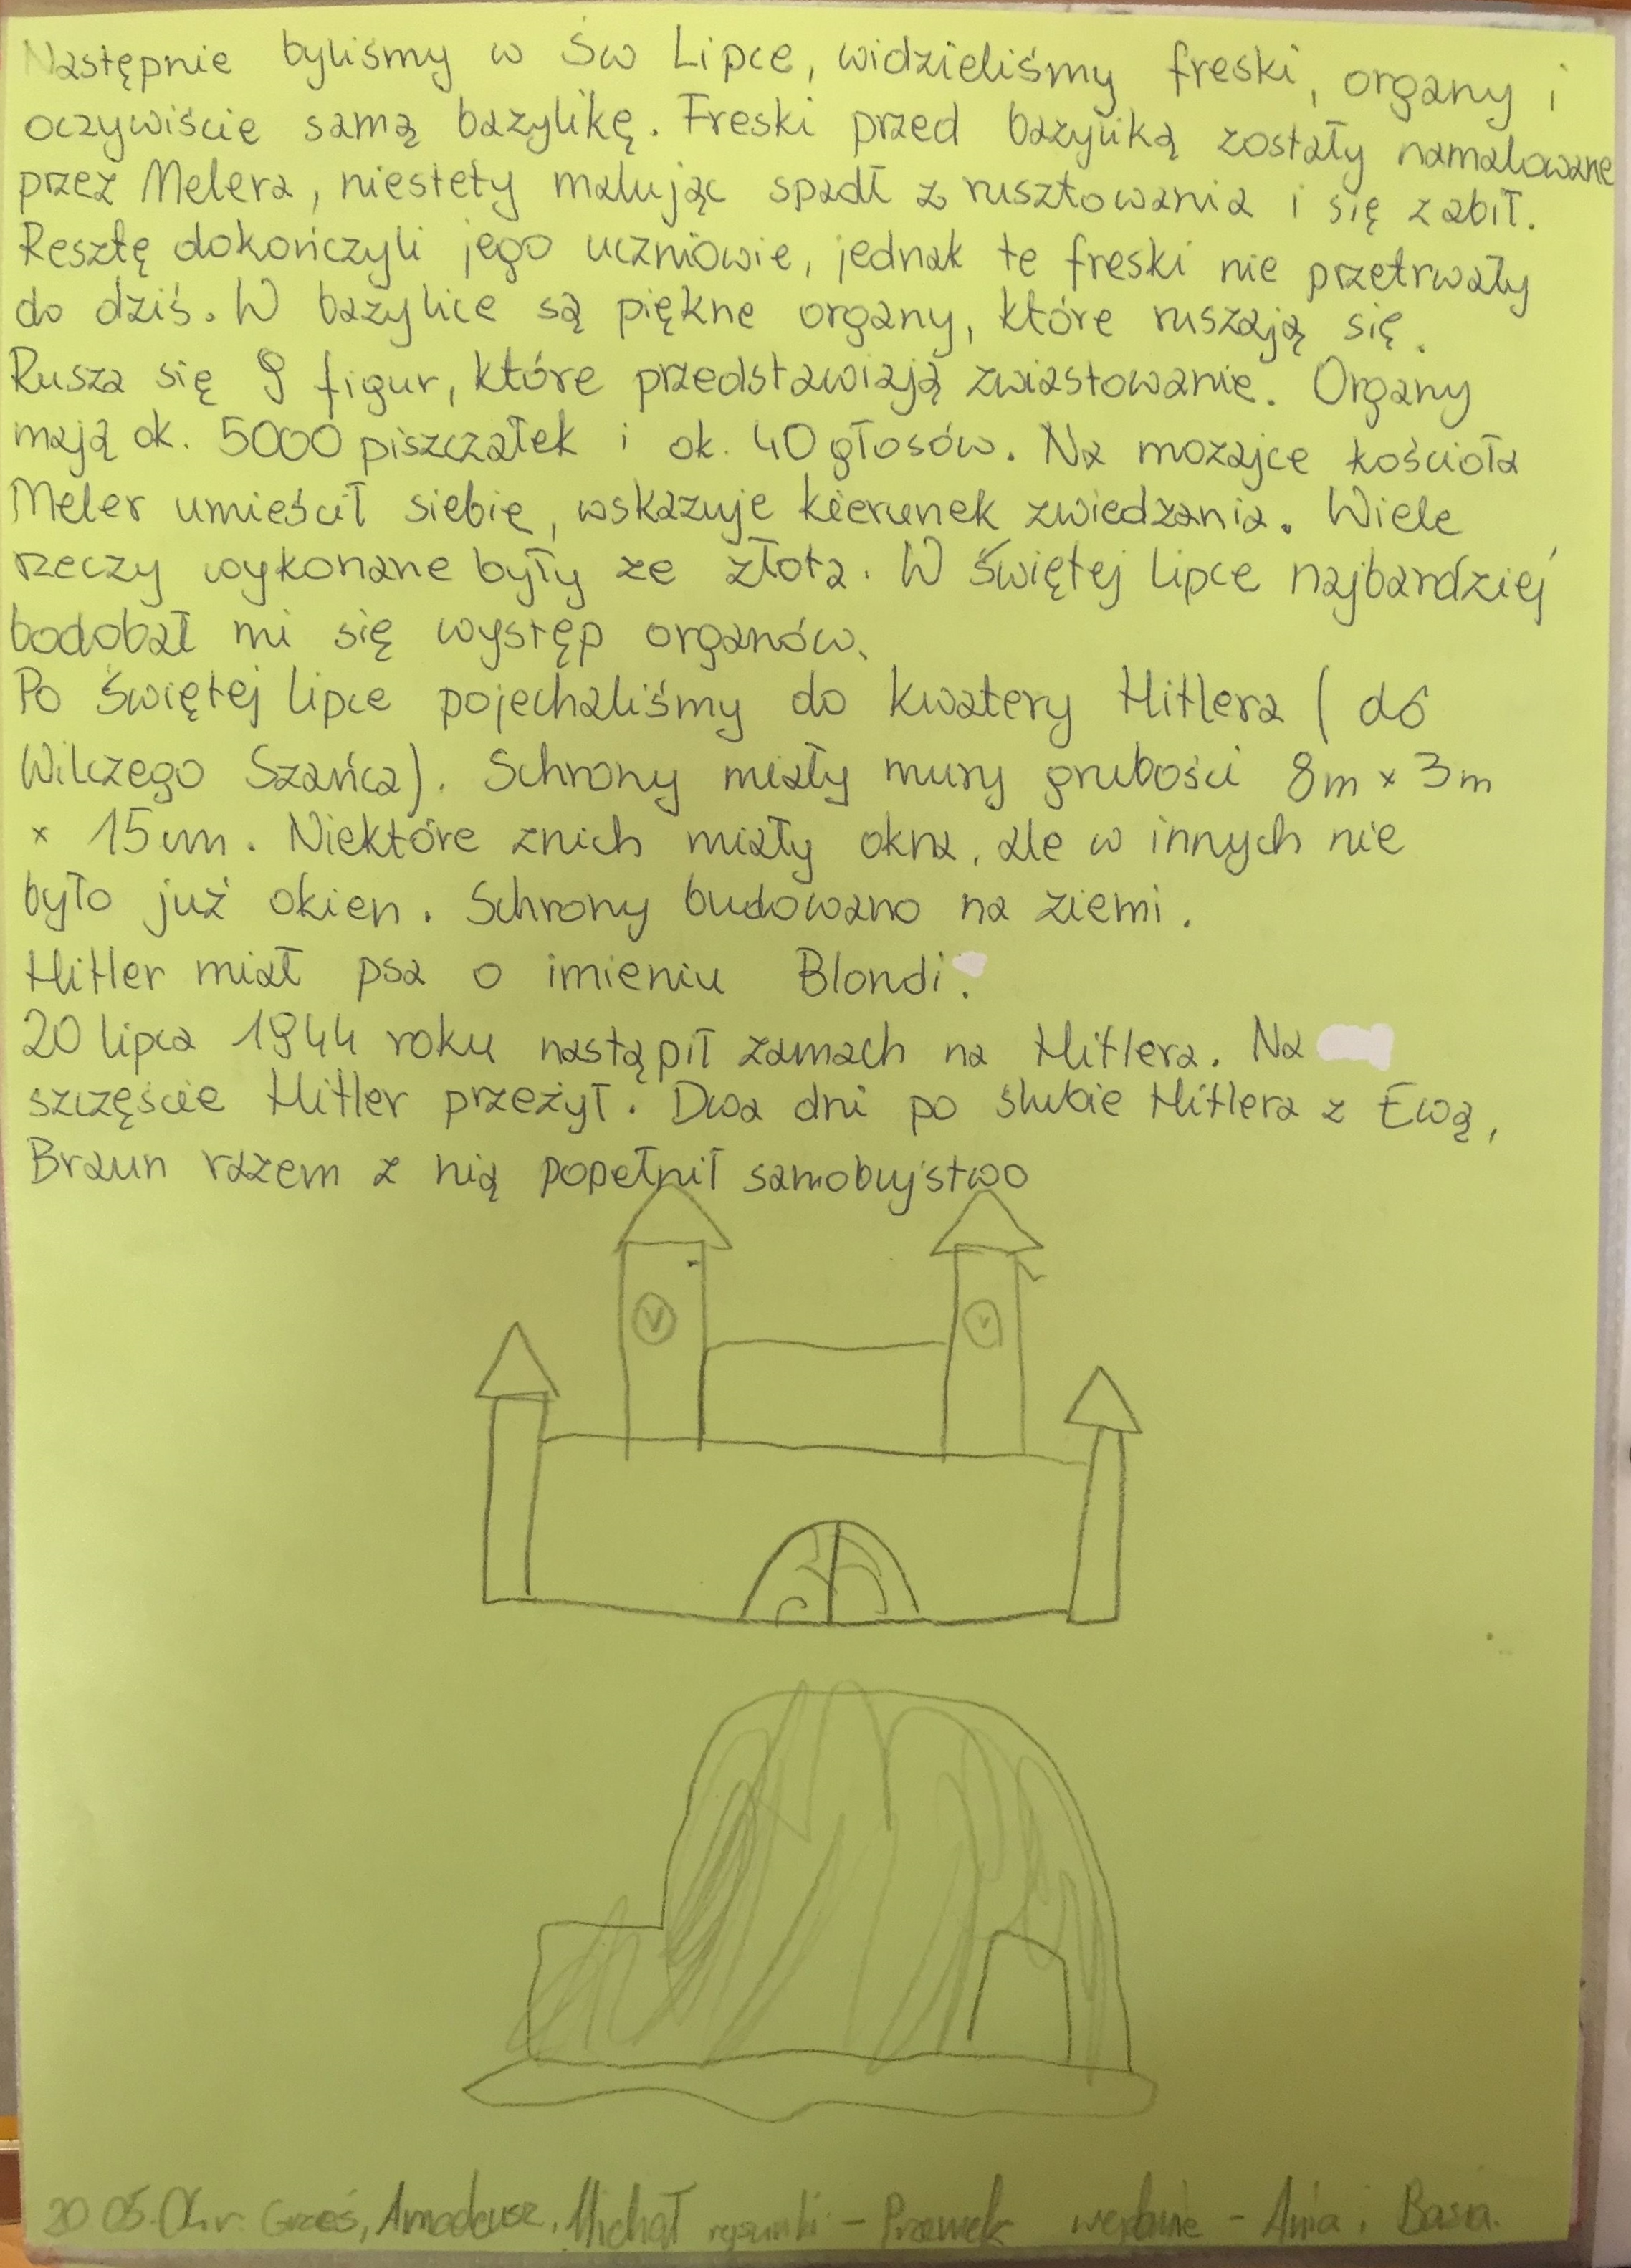 Następnie byliśmy w Św Lipce, widzieliśmy freski, organy i
oczywiście samą bazylikę. Freski przed bazyliką zostały namalowane
przez Melera, niestety malując spadł z rusztowania i się zabił.
Resztę dokończyli jego uczniowie, jednak te freski nie przetrwały
do dziś. W bazylice są piękne organy, które ruszają się.
Rusza się 9 figur, które przedstawiają zwiastowanie. Organy
mają ok. 5000 piszczałek i ok. 40 głosów. Na mozajce kościoła
Meler umieścił siebie, wskazuje kierunek zwiedzania. Wiele
rzeczy wykonane były ze złota. W Świętej Lipce najbardziej
bodobał mi się występ organów.
Po Świętej Lipce pojechaliśmy do kwatery Hitlera (do
Wilczego Szańca). Schrony miały mury grubości 8m x 3m
x 15cm. Niektóre znich miały okna, ale w innych nie
było już okien. Schrony budowano na ziemi.
Hitler miał psa o imieniu Blondi.
20 lipca 1944 roku nastąpił zamach na Hitlera. Na
szczęście Hitler przeżył. Dwa dni po ślubie Hitlera z Ewą,
Braun razem z nią popełnił samobujstwo
20.05.01.r. Grześ, Amadeusz, Michał rysunki - Przemek - Ania i Basia.